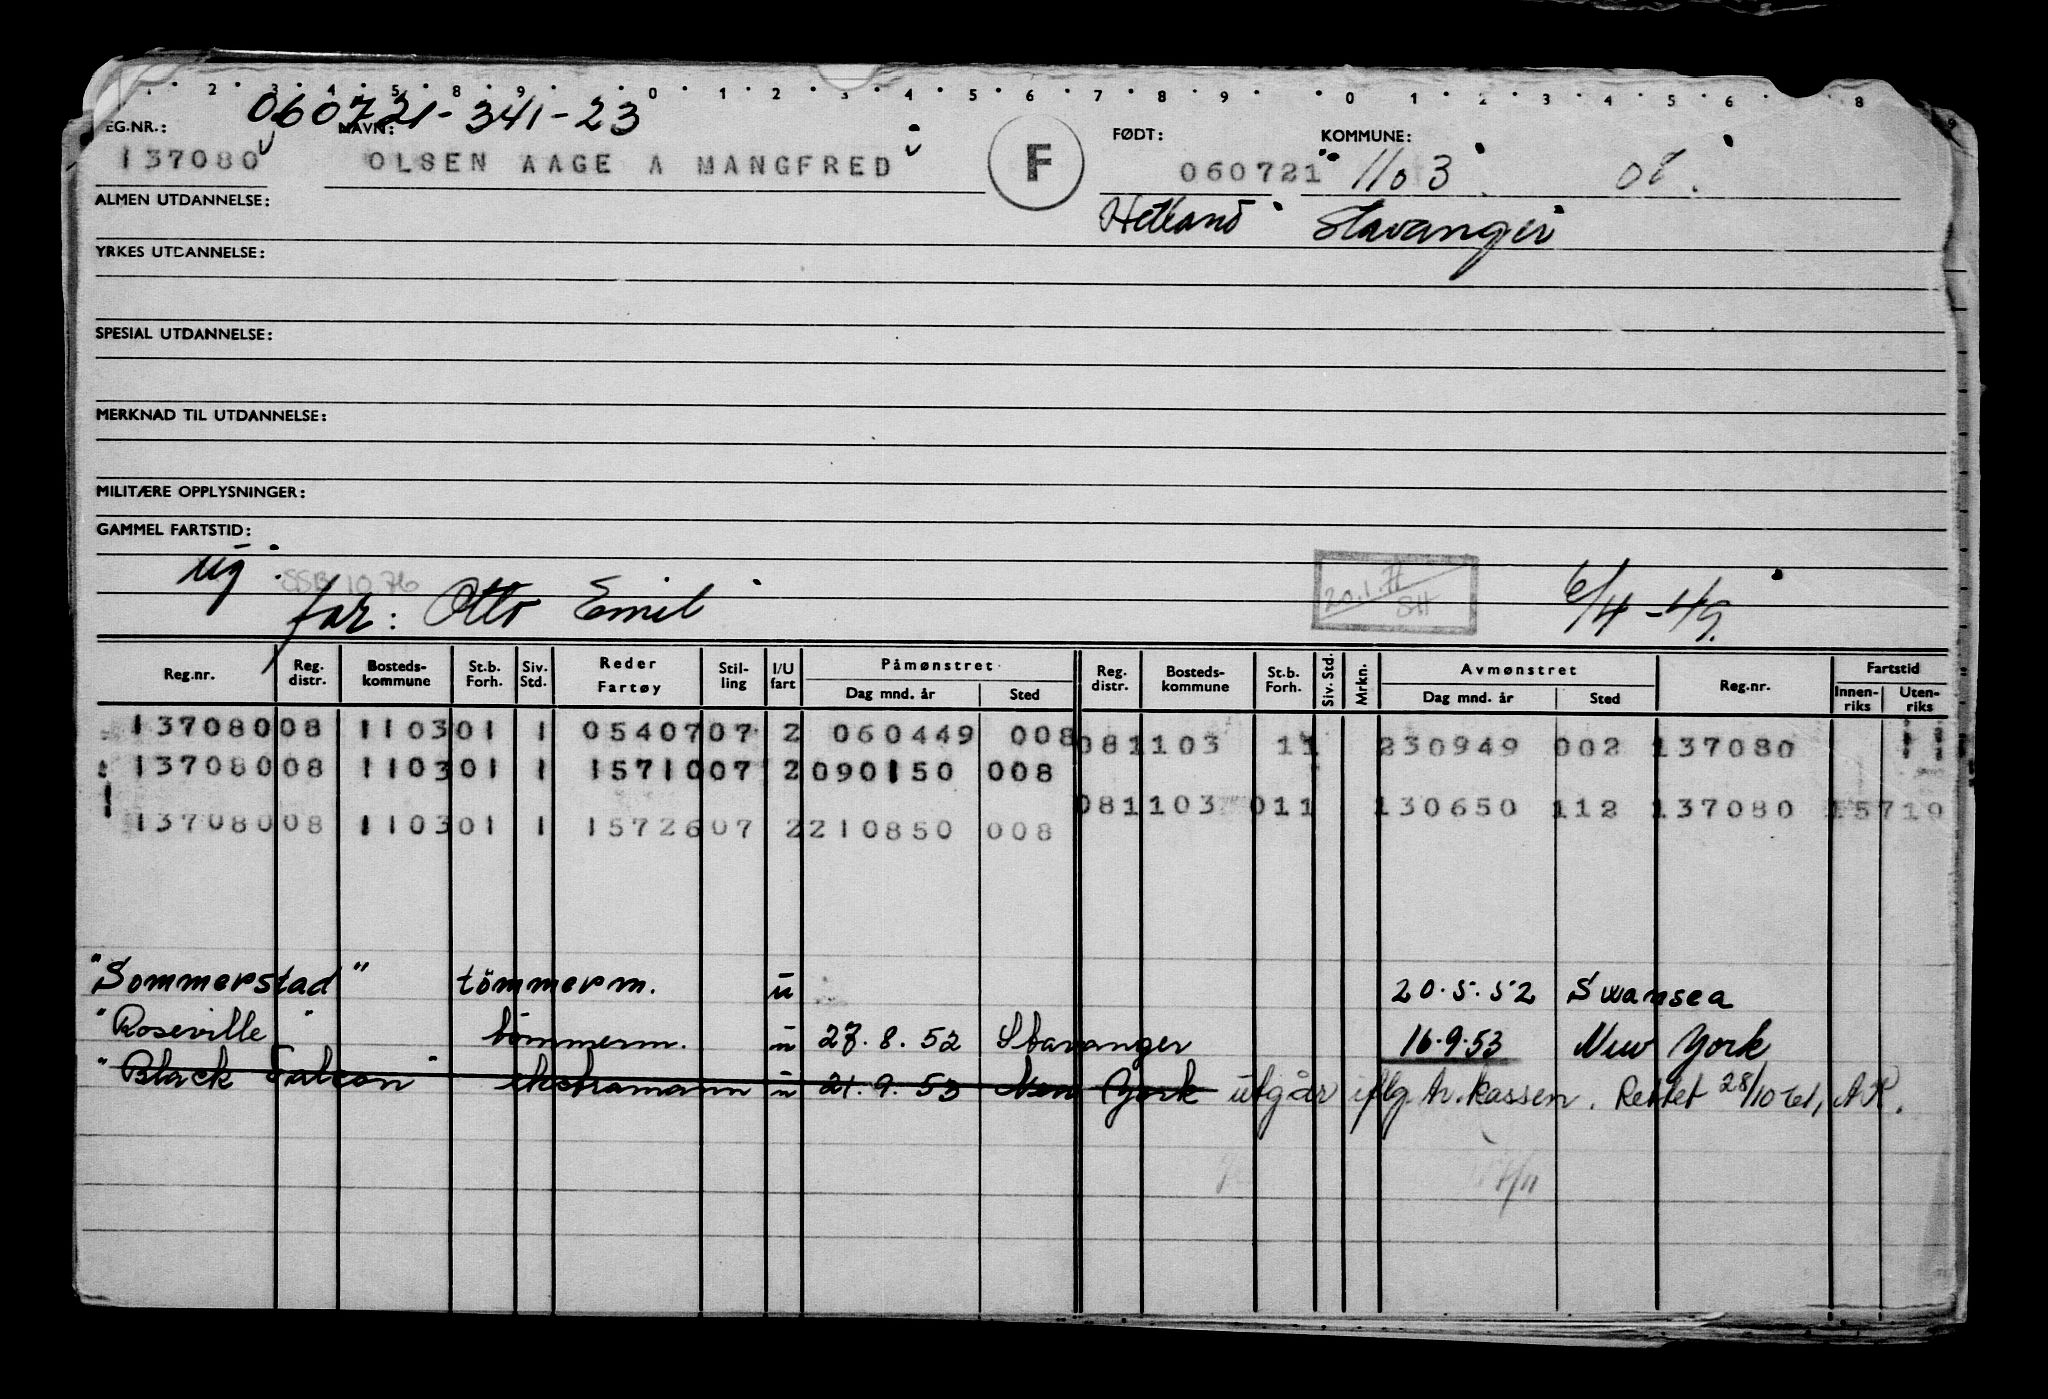 060721-341-23
EG.NR.: NAVN: FØDT: KOMMUNE:
137080 OLSEN AAGE A MANGFRED F 060721 1103 08.
ALMEN UTDANNELSE: Hetland Stavanger
YRKES UTDANNELSE:
SPESIAL UTDANNELSE:
MERKNAD TIL UTDANNELSE:
MILITÆRE OPPLYSNINGER:
GAMMEL FARTSTID:
ug. SSB 1076 20.1. SH 6/4-49.
far: Otto Emil
Reg.nr. Reg. distr. Bosteds- kommune St.b. Forh. Siv. Std. Reder Fartøy Stil- ling I/U fart Påmønstret Dag mnd. år Sted Reg. distr. Bosteds- kommune St.b. Forh. Siv. Std. Mrkn. Avmønstret Dag mnd. år Sted Reg.nr. Fartstid Innen- riks Uten- riks
137080 08 1103 01 1 05407 07 2 060449 008 08 1103 11 230949 002 137080
137080 08 1103 01 1 15710 07 2 090150 008
08 1103 011 130650 112 137080 15719
137080 08 1103 01 1 15726 07 2 210850 008
"Sommerstad" tömmerm. u 20.5.52 Swansea
"Roseville" tömmerm. u 27.8.52 Stavanger 16.9.53 New York
"Black Falcon" ekstramann u 21.9.53 New York utgår iflg. tr.kassen. Rettet 28/10 A.K.